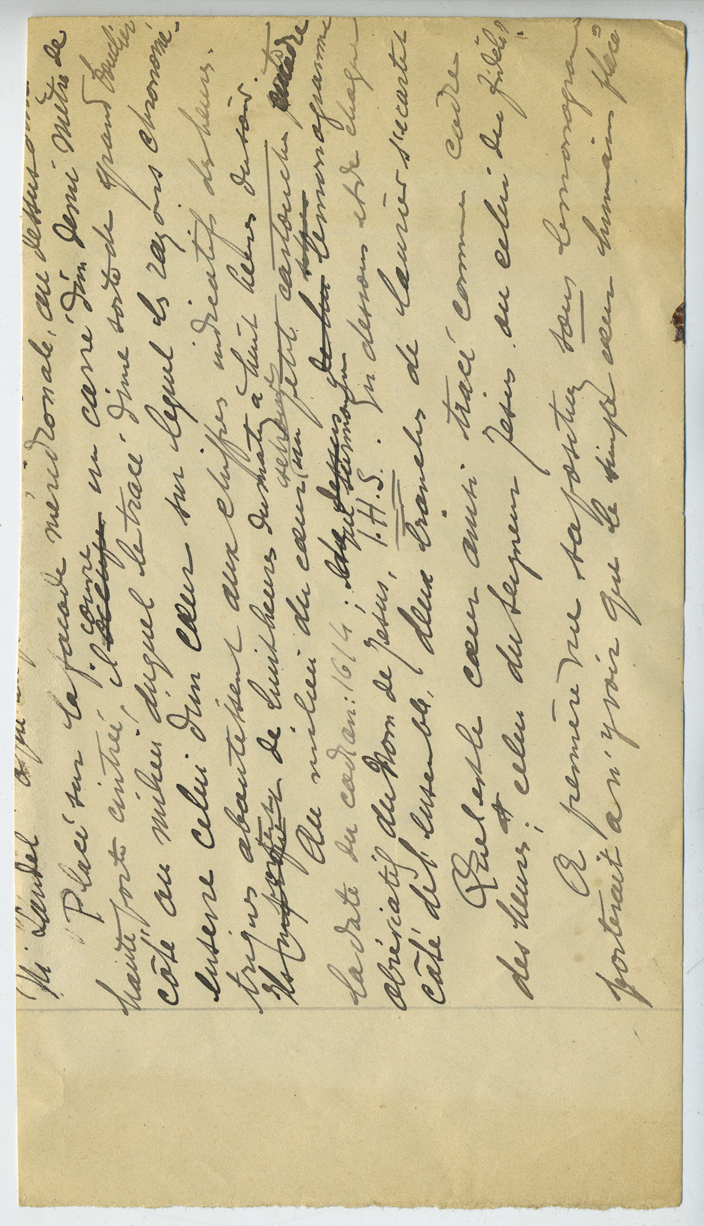 Placé sur la façade méridionale, au dessus d'une
haute porte cintrée, il couvre un carré d'un demi mètre de
côté au milieu duquel le tracé d'une sorte de grand bouclier
enserre celui d'un cœur sur lequel les rayons chronomé-
triques aboutissent aux chiffres indicatifs des heures.
de huit heures du matin à huit heures du soir.
Au milieu du cœur, un petit cartouche
la date du cadran: 1614; le monogramme
abréviatif du Nom de Jésus, I.H.S. Au dessous et de chaque
côté de l'ensemble, deux branches de laurier s'écartent
Quel est le cœur ainsi tracé comme cadre
des heures; celui du Seigneur Jésus ou celui du fidèle?
A première vue sa position sous le monogramme
porterait à n'y voir que le simple cœur humain placé